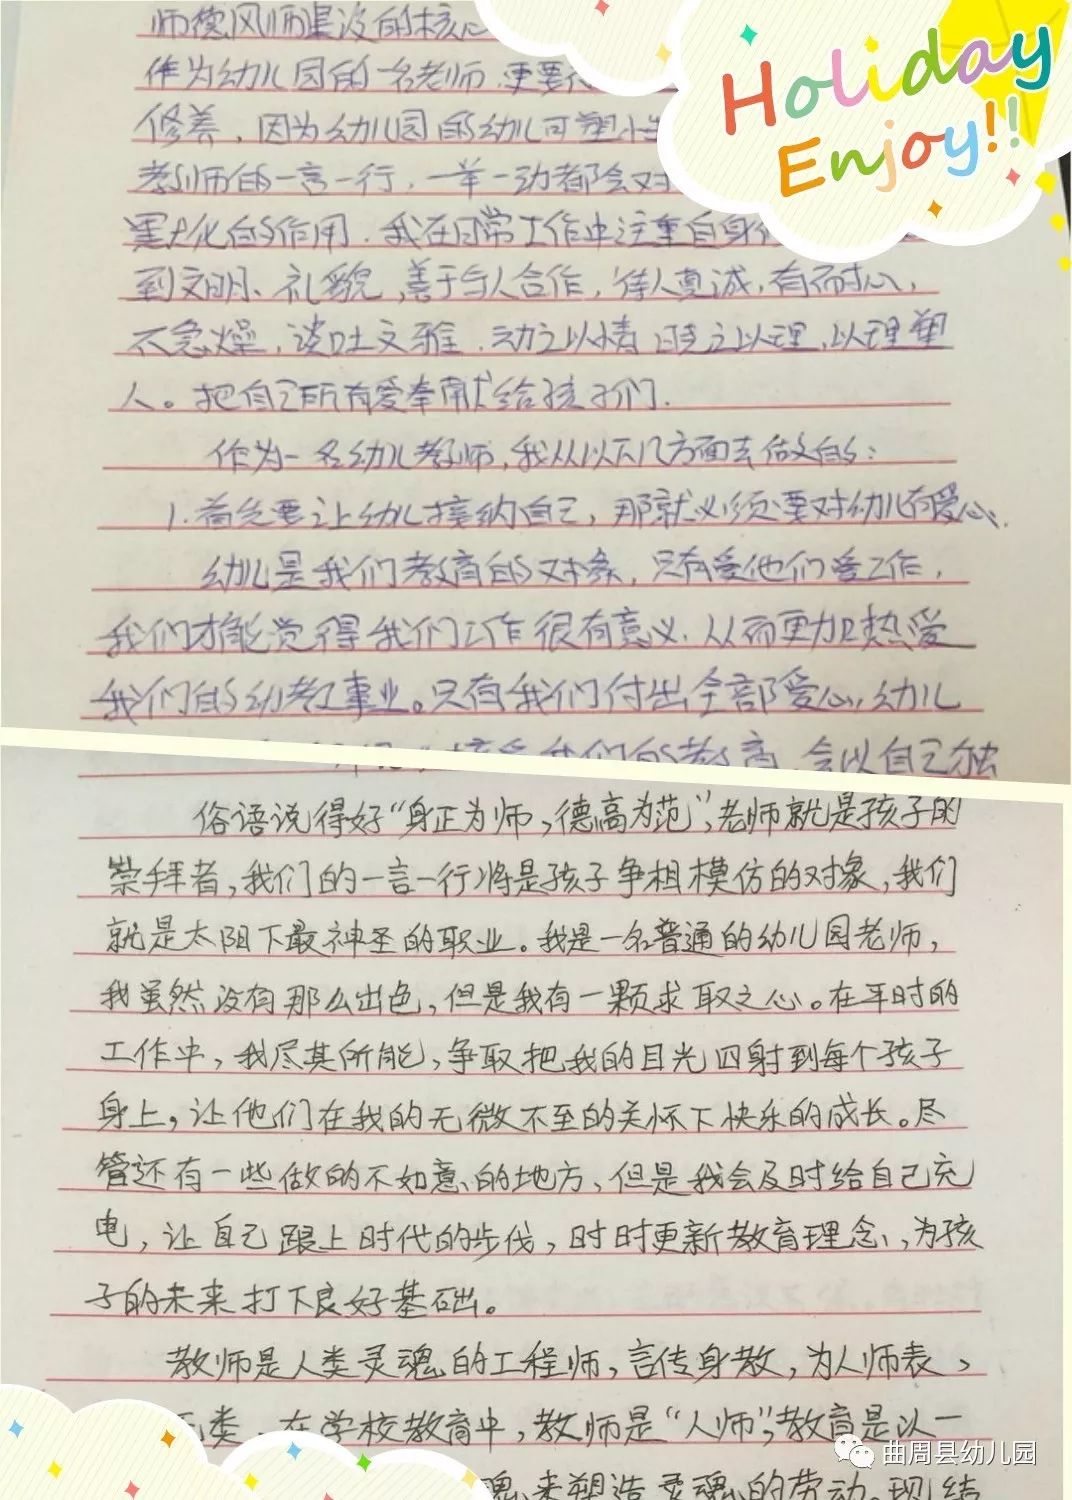 师德风师是没的核心
作为幼儿园的一名老师,更要
修养,因为幼儿园的幼儿可塑性
教师的一言一行,一举一动都会对
墨大化的作用.我在日常工作中注重自身
到文明、礼貌,善于与人合作,待人真诚,有耐心,
不急燥,谈吐文雅.动之以情晓之以理,以理塑
人。把自己所有爱奉献给孩子们.
作为一名幼儿教师,我从以下几方面去做的:
1.首先要让幼儿接纳自己,那就必须要对幼儿有爱心.
幼儿是我们教育的对象,只有爱他们爱工作,
我们才能觉得我们工作很有意义.从而更加热爱
我们的幼教事业。只有我们付出全部爱心,幼儿
我们的教育,会以自己独
俗语说得好“身正为师,德高为范”,老师就是孩子的
崇拜者,我们的一言一行将是孩子争相模仿的对象,我们
就是太阳下最神圣的职业。我是一名普通的幼儿园老师,
我虽然没有那么出色,但是我有一颗求取之心。在平时的
工作中,我尽其所能,争取把我的目光四射到每个孩子
身上,让他们在我的无微不至的关怀下快乐的成长。尽
管还有一些做的不如意的地方,但是我会及时给自己充
电,让自己跟上时代的步伐,时时更新教育理念,为孩
子的未来打下良好基础。
教师是人类灵魂的工程师,言传身教,为人师表,
无类.在学校教育中,教师是“人师”,教育是以一
魂来塑造灵魂的劳动.现结
Holiday
Enjoy!!
曲周县幼儿园